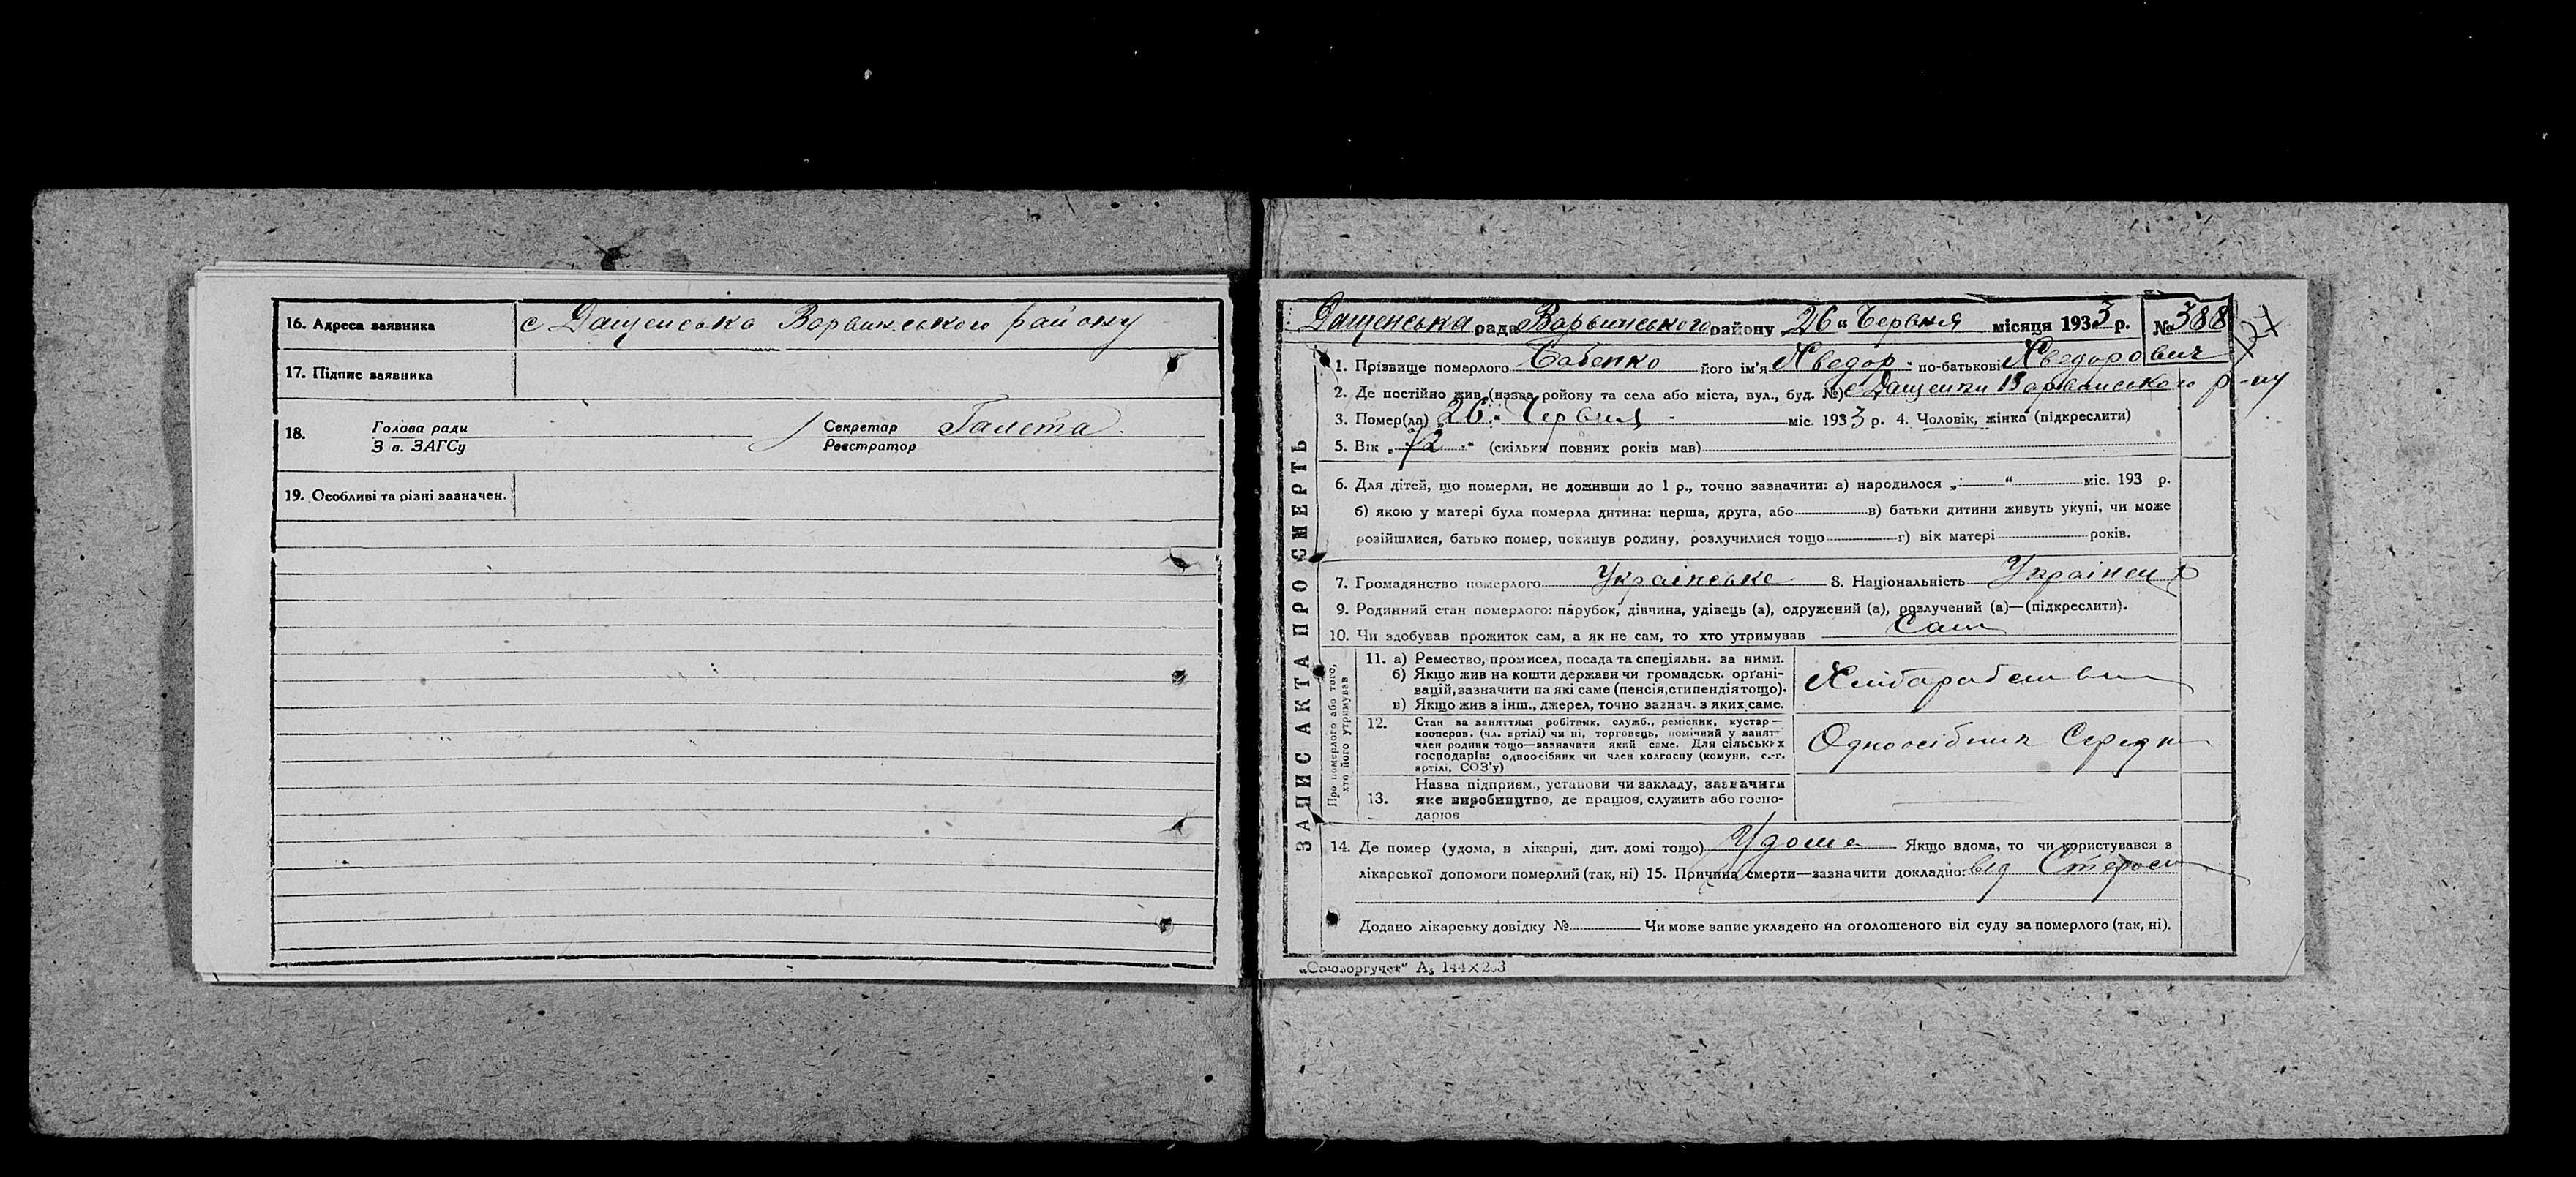 16. Адреса заявника с Дащенсько Варвинського району
17. Підпис заявника
18. Голова ради Секретар Галета
З в. ЗАГСу Реєстратор
19. Особливі та різні зазначен.
Дащенська рада Варвинського району 26 " Червня місяця 1933 р. № 388
ЗАПИС АКТА ПРО СМЕРТЬ
1. Прізвище померлого Бабенко його ім'я Хведор по-батькові Хведорович
2. Де постійно жив (назва ройону та села або міста, вул., буд. №) с Дащенки Варвинського р-ну
3. Помер(ла) „ 26 " Червня міс. 1933 р. 4. Чоловік, жінка (підкреслити)
5. Вік „ 72 " (скільки повних років мав)
6. Для дітей, що померли, не доживши до 1 р., точно зазначити: а) народилося „ “ міс. 193 р.
б) якою у матері була померла дитина: перша, друга, або в) батьки дитини живуть укупі, чи може
розійшлися, батько помер, покинув родину, розлучилися тощо г) вік матері років.
7. Громадянство померлого Українське 8. Національність Українец
9. Родинний стан померлого: парубок, дівчина, удівець (а), одружений (а), розлучений (а)—(підкреслити).
10. Чи здобував прожиток сам, а як не сам, то хто утримував Сам
Про померлого або того, хто його утримував
11. а) Ремество, промисел, посада та спеціяльн. за ними.
б) Якщо жив на кошти держави чи громадськ. органі-
зацій, зазначити на які саме (пенсія, стипендія тощо).
в) Якщо жив з інш., джерел, точно зазнач. з яких саме.
12. Стан за заняттям: робітник, служб., ремісник, кустар—
кооперов. (чл. артілі) чи ні, торговець, помічний у занятт
член родини тощо—зазначити який саме. Для сільських
господарів: одноосібник чи член колгоспу (комуни, с.-г.
артілі, СОЗ'у)
Одноосібник Середн
13. Назва підприєм., установи чи закладу, зазначити
яке виробництво, де працює, служить або госпо-
дарює
14. Де помер (удома, в лікарні, дит. домі тощо) Удома Якщо вдома, то чи користувався з
лікарської допомоги померлий (так, ні) 15. Причина смерти—зазначити докладно: від Старост
Додано лікарську довідку № Чи може запис укладено на оголошеного від суду за померлого (так, ні).
„Союзоргучет“ А₅ 144×203